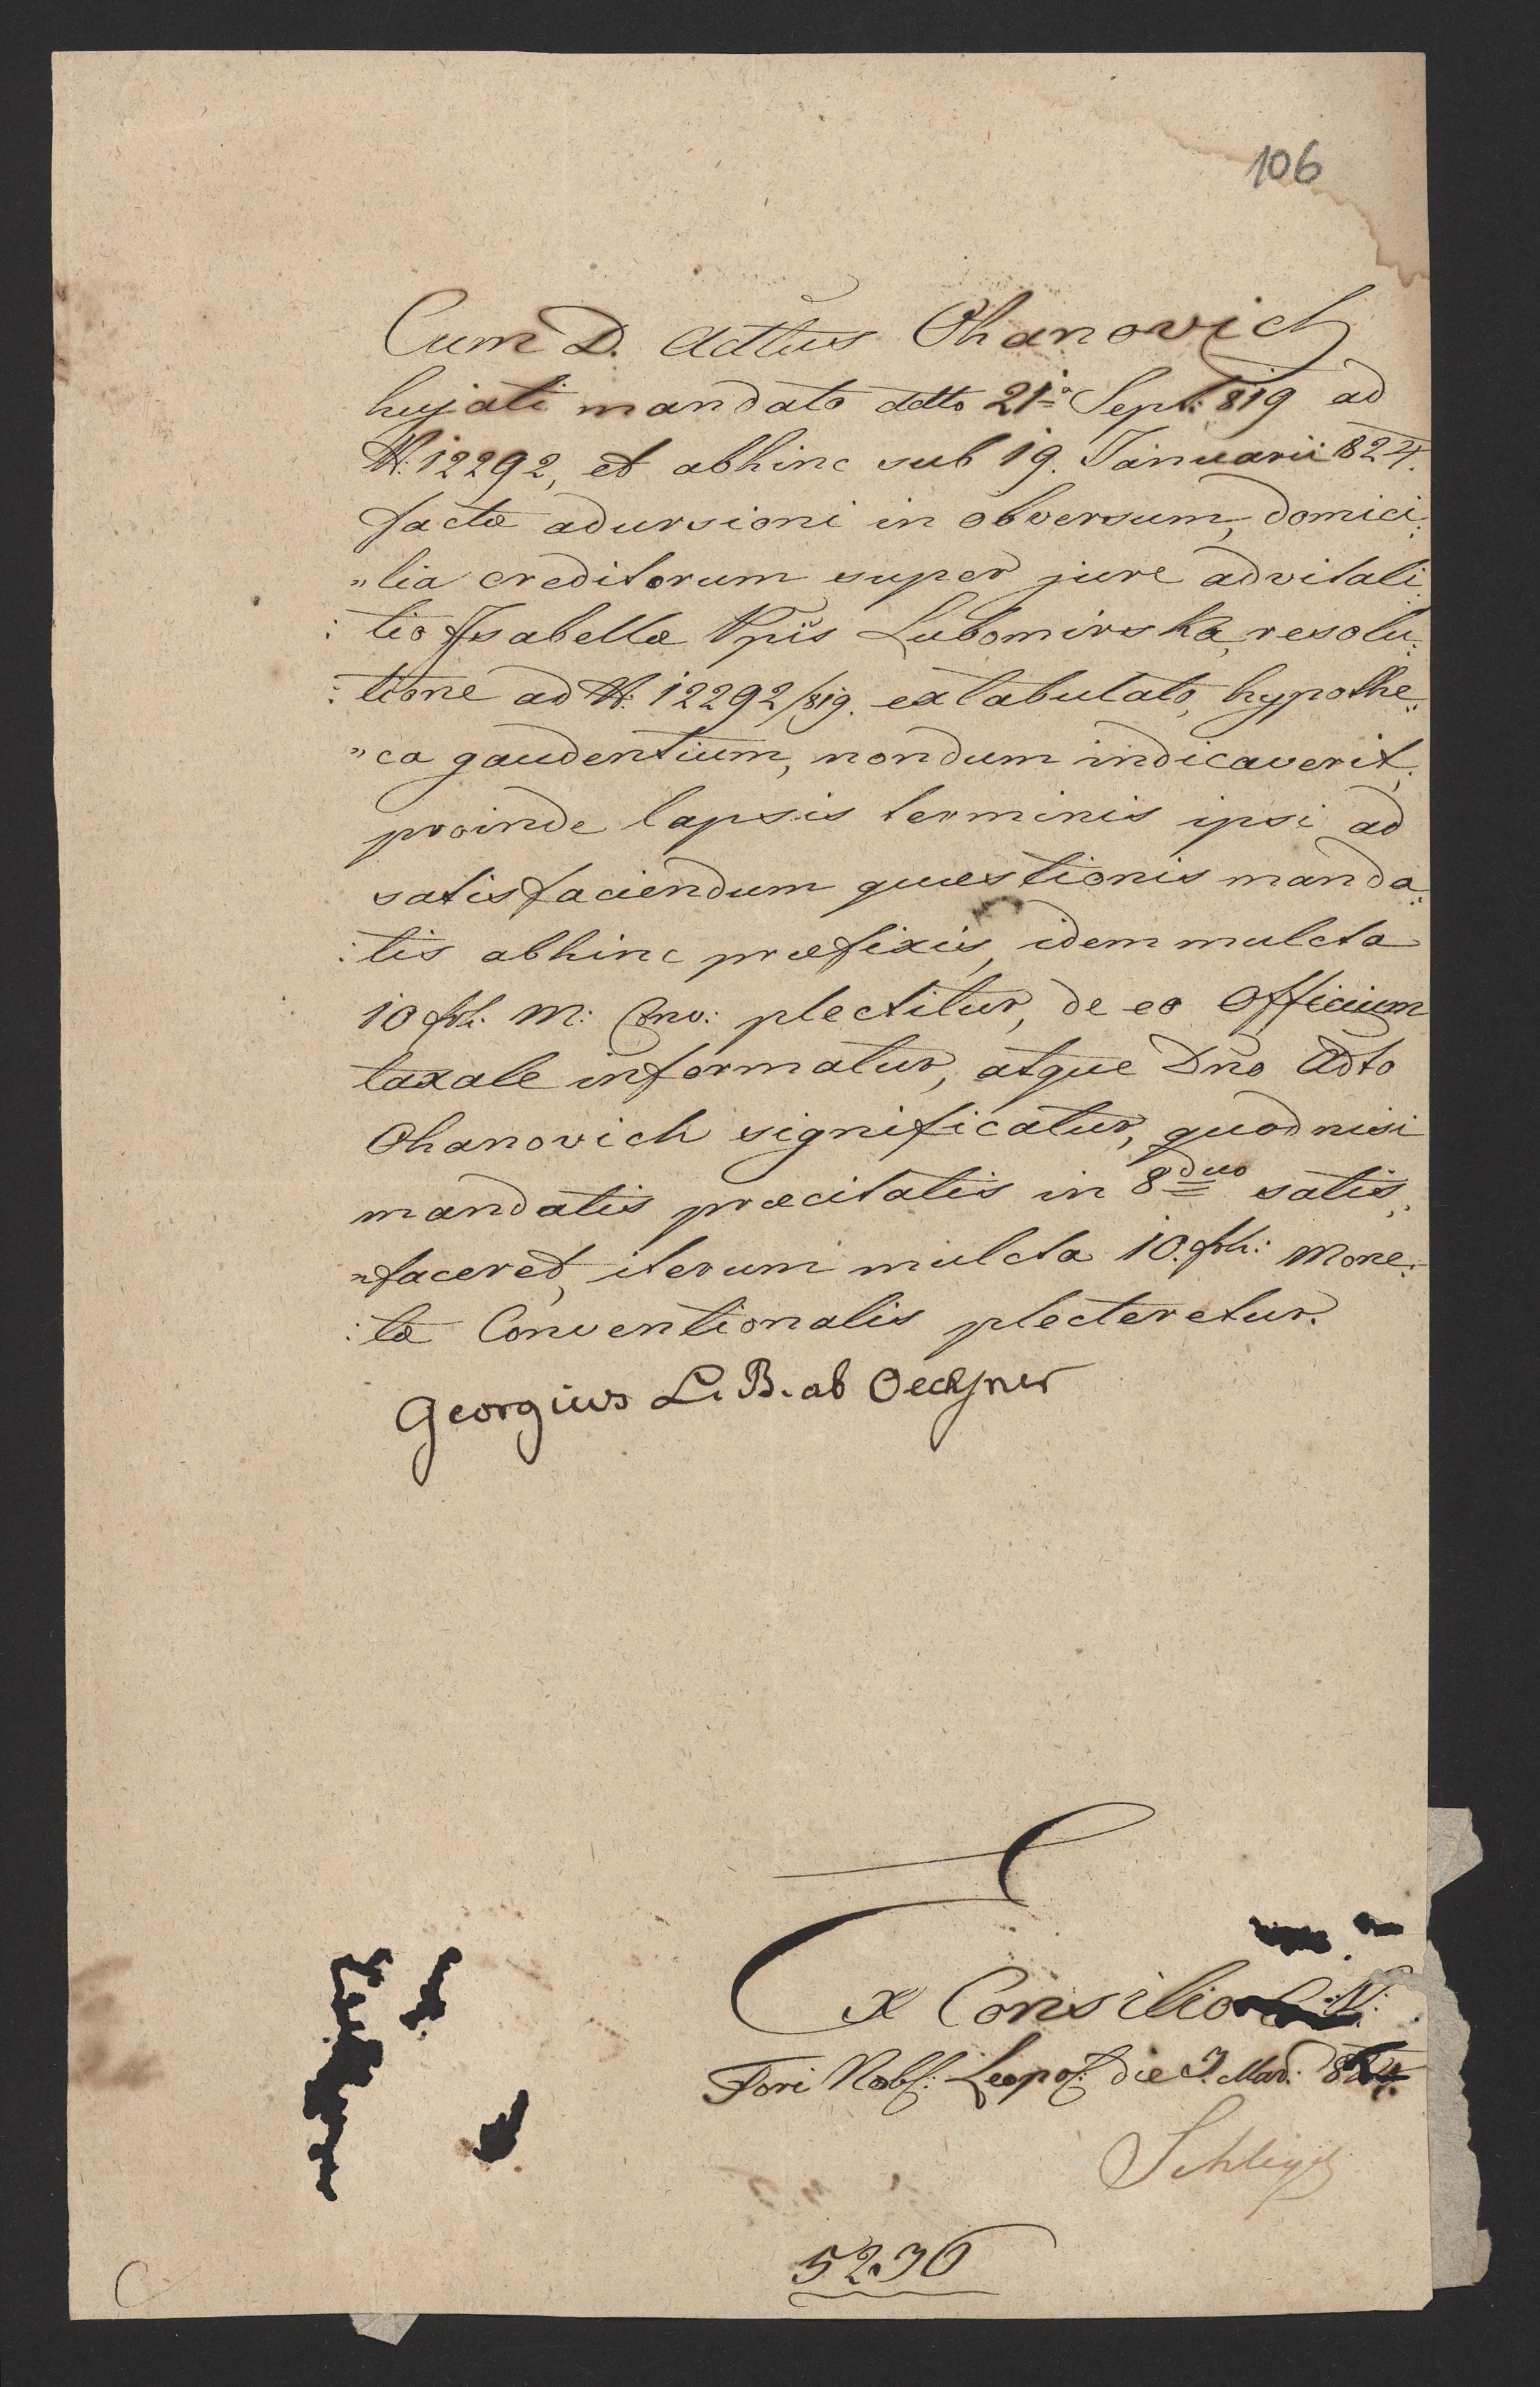 106
Cum D. Adttus Ohanovich
hujati mandato ddto 21a Sept: 819 ad
N: 12292, et abhinc sub 19. Januarii 824.
factæ adursioni in obversum, domici:
„lia creditorum super jure advitali
: tio Isabellæ Ppiis Lubomirska, resolu:
: tione ad N: 12292/819. extabulato, hypothe„
„ca gaudentium, nondum indicaverit,
proinde lapsis terminis ipsi ad
satisfaciendum quæstionis manda:
: tis abhinc præfixis, idem mulcta
10 frh: M: Conv: plectitur, de eo Officium
taxale informatur, atque Dno Adto
Ohanovich significatur, quod nisi
mandatis præcitatis in 8duo satis„
„faceret, iterum mulcta 10. frh: Mone:
: tæ Conventionalis plecteretur.
Georgius L. B. ab Oechsner
Ex Consilio
Fori Nobl: Leopol: die 3. Mar: 824.
5236